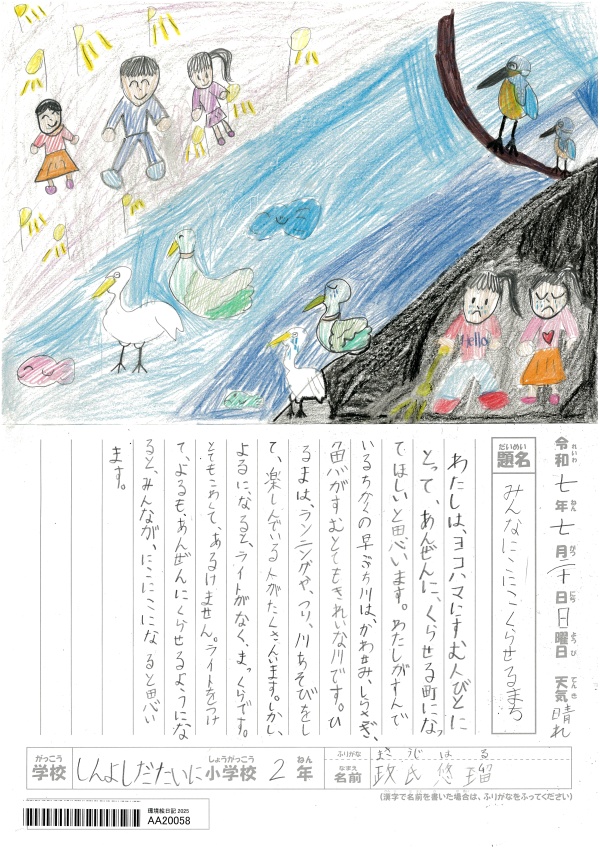 Hello
令和七年七月二十日日曜日 天気晴れ
れいわ ねん がつ にち ようび てんき
だいめい
題名
みんなにこにこくらせるまち
わたしは、ヨコハマにすむ人びとに
とって、あんぜんに、くらせる町になっ
てほしいと思います。わたしがすんで
いるちかくの早ぶち川は、かわせみ、しらさぎ、
魚がすむとてもきれいな川です。ひ
るまは、ランニングや、つり、川あそびをし
て、楽しんでいる人がたくさんいます。しかし、
よるに、なると、ライトがなく、まっくらです。
とてもこわくて、あるけません。ライトをつけ
て、よるも、あんぜんにくらせるようにな
ると、みんなが、にこにこになると思い
ます。
がっこう しょうがっこう ねん
学校 しんよしだだいに小学校 2年
ふりがな まさうじ はる
なまえ
名前 政氏悠瑠
(漢字で名前を書いた場合は、ふりがなをふってください)
環境絵日記 2025
AA20058